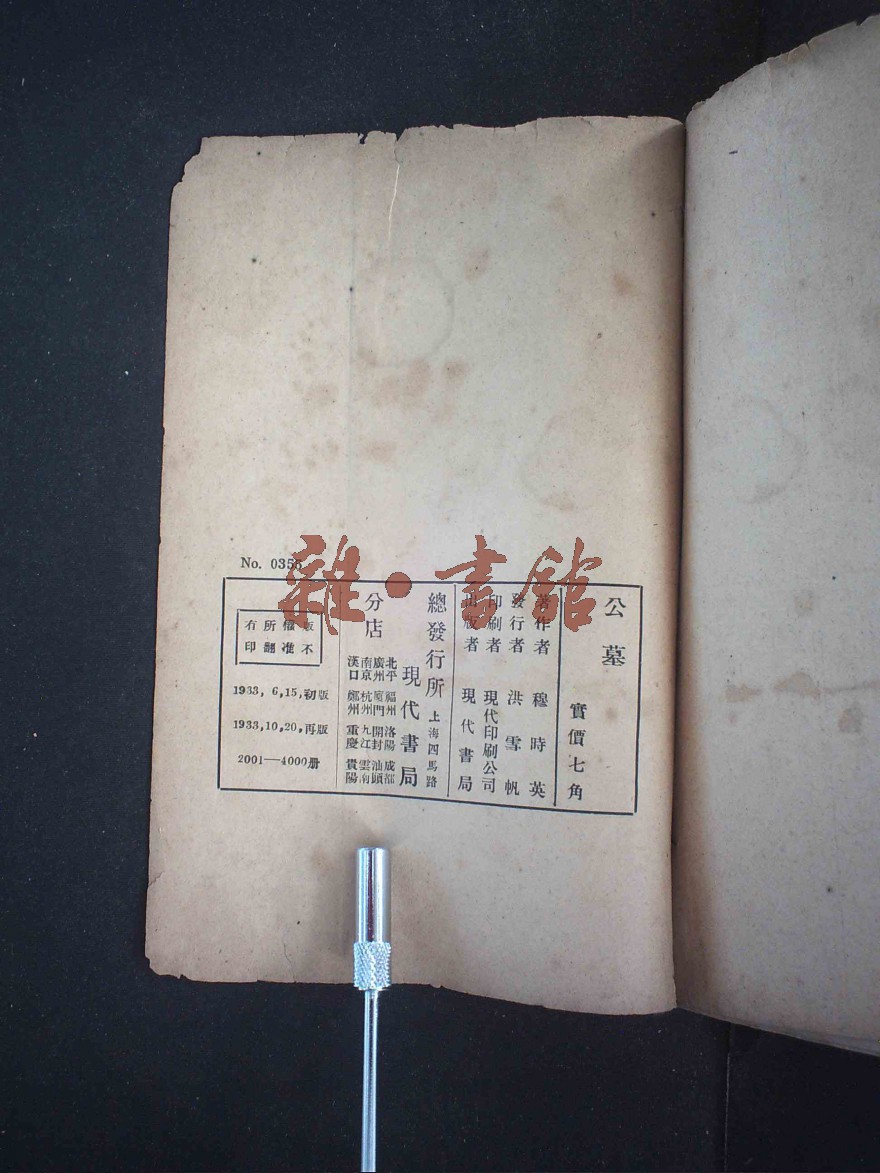 No. 0355
公墓
實價七角
著作者 穆時英
發行者 洪雪帆
印刷者 現代印刷公司
出版者 現代書局
總發行所 上海四馬路
現代書局
分店
北平 福州 洛陽 成都
廣州 廈門 開封 汕頭
南京 杭州 九江 雲南
漢口 鄭州 重慶 貴陽
版權所有
不准翻印
1933, 6,15, 初版
1933,10,20, 再版
2001—4000册
雜·書館